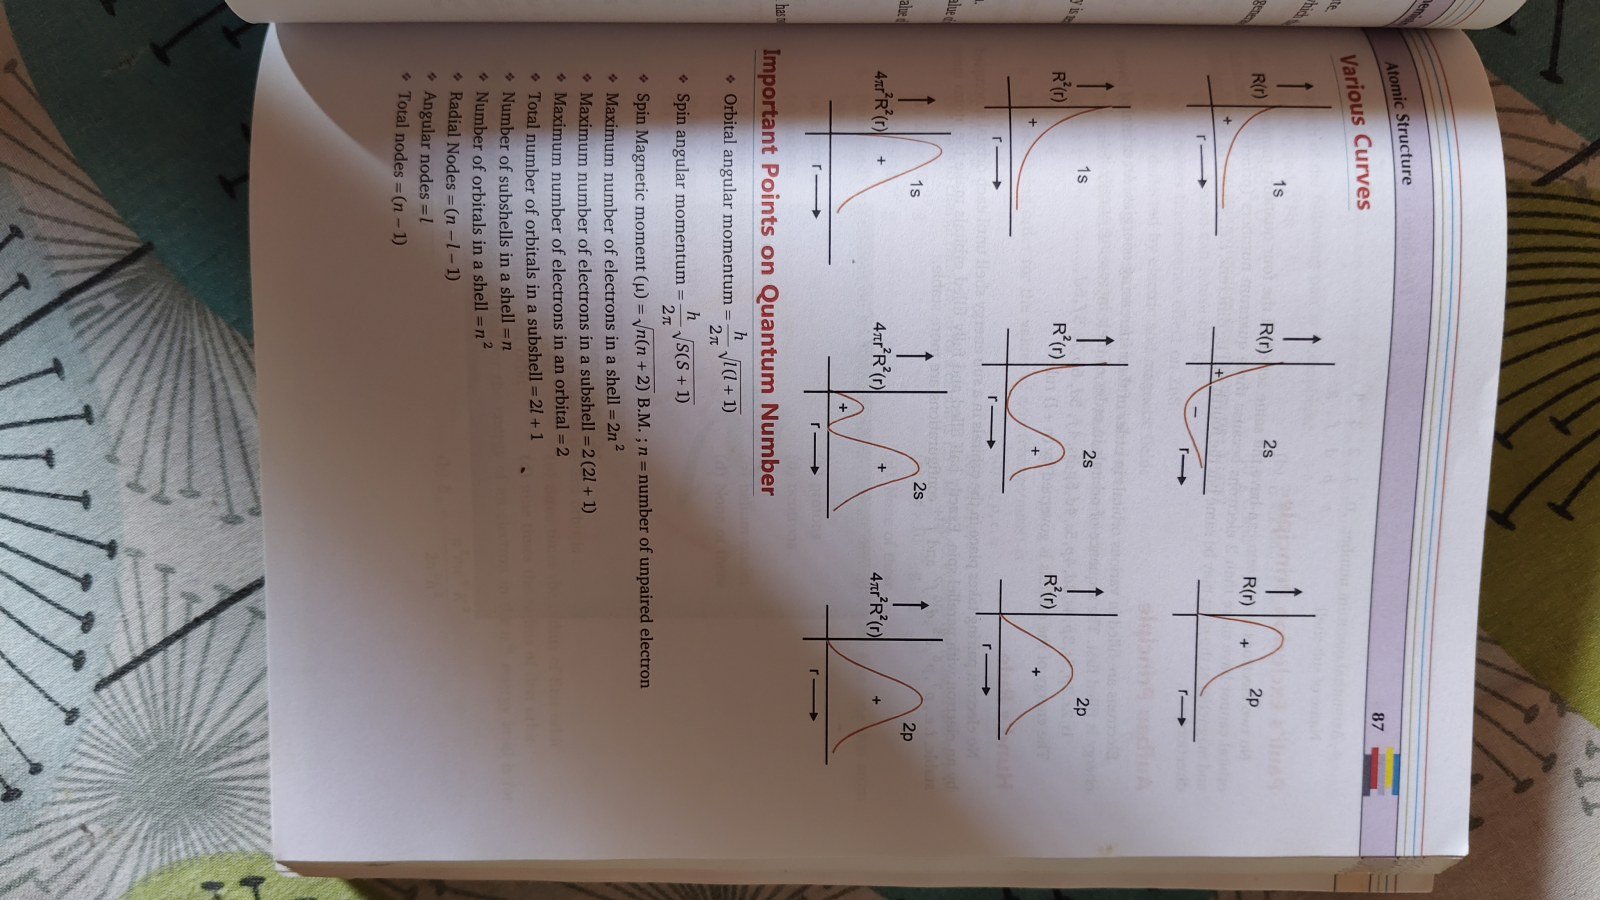 Atomic Structure 87
Various Curves
R(r) 1s + r
R(r) 2s + − r
R(r) 2p + r
R²(r) 1s + r
R²(r) 2s + r
R²(r) 2p + r
4πr²R²(r) 1s + r
4πr²R²(r) 2s + + r
4πr²R²(r) 2p + r
Important Points on Quantum Number
❖ Orbital angular momentum = h/2π √l(l + 1)
❖ Spin angular momentum = h/2π √S(S + 1)
❖ Spin Magnetic moment (μ) = √n(n + 2) B.M. ; n = number of unpaired electron
❖ Maximum number of electrons in a shell = 2n²
❖ Maximum number of electrons in a subshell = 2(2l + 1)
❖ Maximum number of electrons in an orbital = 2
❖ Total number of orbitals in a subshell = 2l + 1
❖ Number of subshells in a shell = n
❖ Number of orbitals in a shell = n²
❖ Radial Nodes = (n − l − 1)
❖ Angular nodes = l
❖ Total nodes = (n − 1)